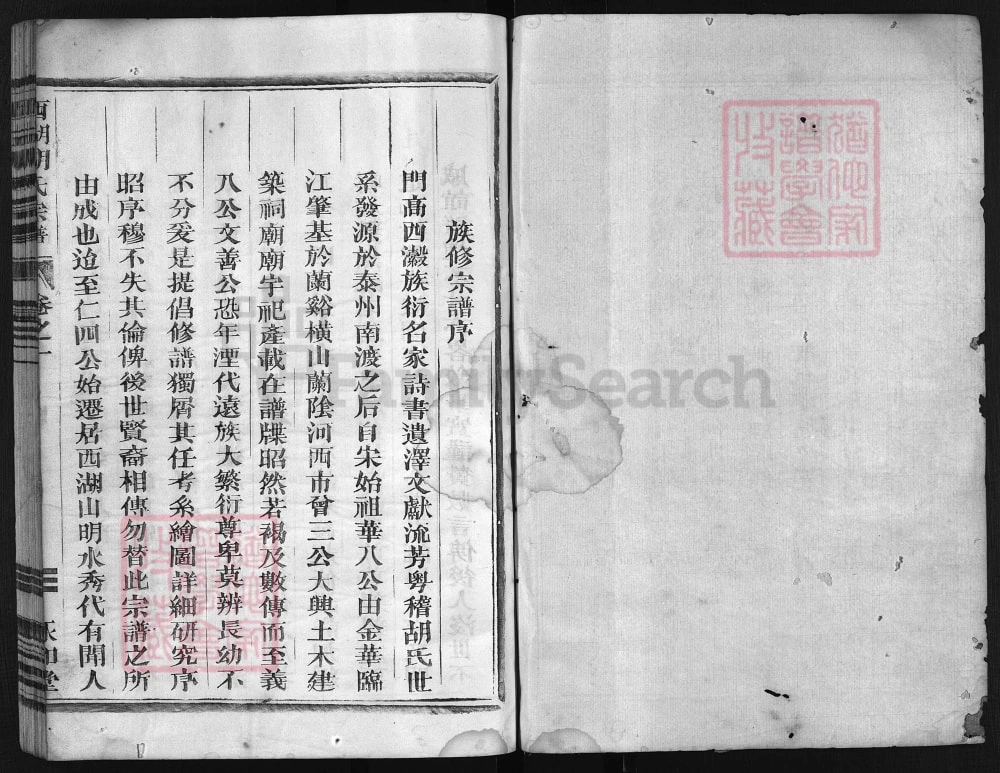 猶他家
譜學會
收藏
族修宗譜序
門高西瀫族衍名家詩書遺澤文獻流芳粵稽胡氏世
系發源於泰州南渡之后自宋始祖華八公由金華臨
江肇基於蘭谿橫山蘭陰河西市曾三公大興土木建
築祠廟廟宇祀產載在譜牒昭然若褐及數傳而至義
八公文善公恐年湮代遠族大繁衍尊卑莫辨長幼不
不分爰是提倡修譜獨屑其任考系繪圖詳細研究序
昭序穆不失其倫俾後世賢裔相傳勿替此宗譜之所
由成也迨至仁四公始遷居西湖山明水秀代有聞人
西湖胡氏宗譜 卷之一
FamilySearch